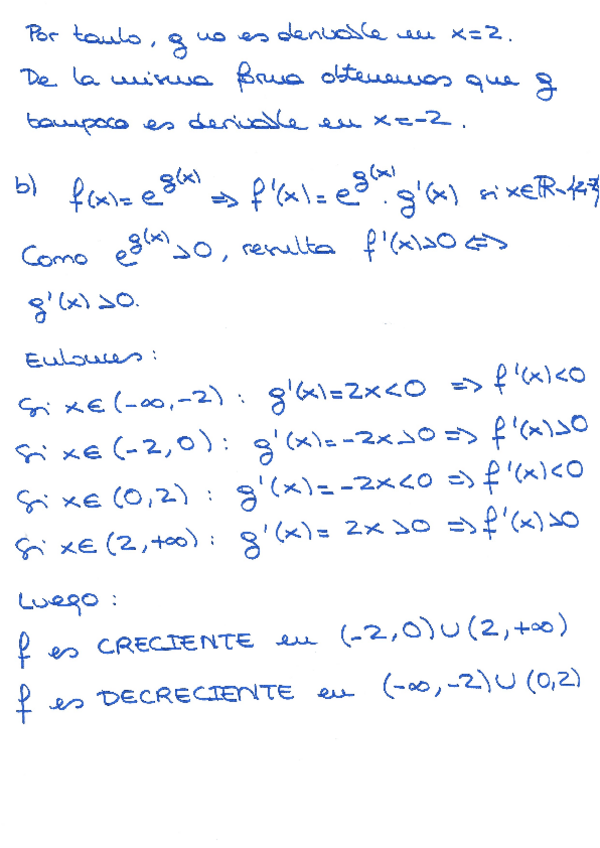 Por tanto, g no es derivable en x=2.
De la misma forma obtenemos que g
tampoco es derivable en x=-2.
b) f(x)=e^{g(x)} ⇒ f'(x)=e^{g(x)}·g'(x) si x∈ℝ-{2,-2}
Como e^{g(x)}>0, resulta f'(x)>0 ⇔
g'(x)>0.
Entonces:
Si x∈(-∞,-2): g'(x)=2x<0 ⇒ f'(x)<0
Si x∈(-2,0): g'(x)=-2x>0 ⇒ f'(x)>0
Si x∈(0,2): g'(x)=-2x<0 ⇒ f'(x)<0
Si x∈(2,+∞): g'(x)=2x>0 ⇒ f'(x)>0
Luego:
f es CRECIENTE en (-2,0)∪(2,+∞)
f es DECRECIENTE en (-∞,-2)∪(0,2)